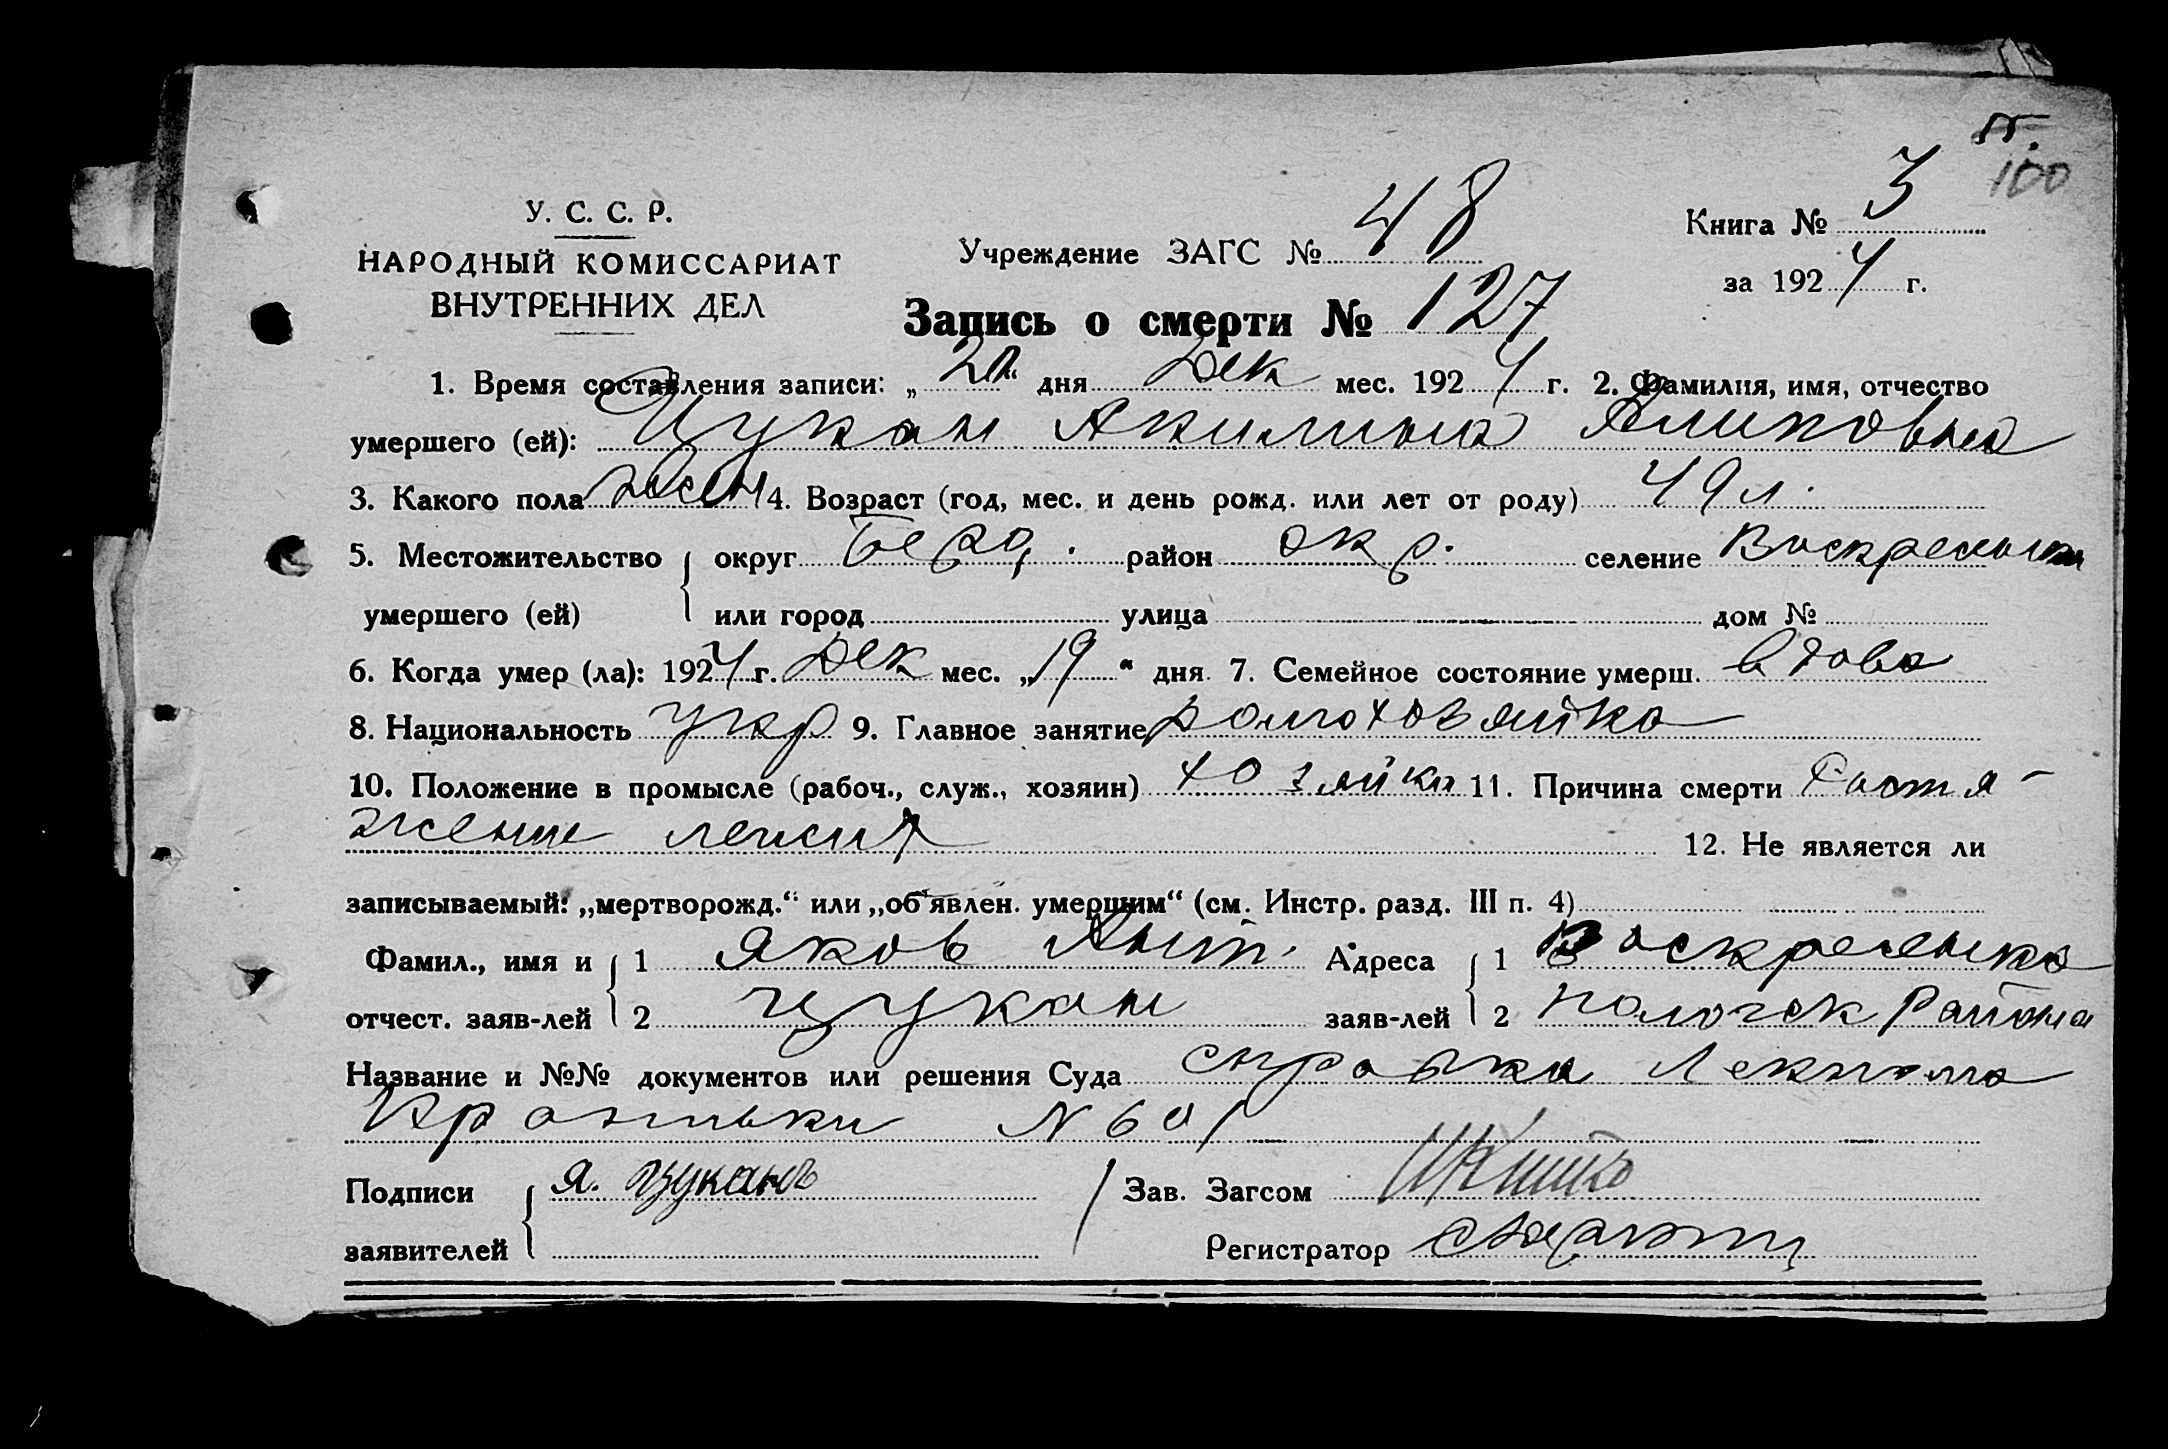 100
У. С. С. Р.
НАРОДНЫЙ КОМИССАРИАТ
ВНУТРЕННИХ ДЕЛ
Учреждение ЗАГС № 48
Книга № 3
за 1924 г.
Запись о смерти № 127
1. Время составления записи: „20“ дня Дек мес. 1924 г. 2. Фамилия, имя, отчество
умершего (ей): Цукан Акилина
3. Какого пола жен 4. Возраст (год, мес. и день рожд. или лет от роду) 49 л.
5. Местожительство округ район окр. селение Воскресенка
умершего (ей) или город улица дом №
6. Когда умер (ла): 1924 г. Дек мес. „19“ дня 7. Семейное состояние умерш. вдова
8. Национальность укр 9. Главное занятие домохозяйка
10. Положение в промысле (рабоч., служ., хозяин) хозяйка 11. Причина смерти
12. Не является ли
записываемый: „мертворожд.“ или „об'явлен. умершим“ (см. Инстр. разд. III п. 4)
Фамил., имя и 1 Яков Ант. Адреса 1 Воскресенка
отчест. заяв-лей 2 Цукан заяв-лей 2 Пологск Района
Название и №№ документов или решения Суда справка Лекпома
N 601
Подписи Я. Цуканов Зав. Загсом
заявителей Регистратор